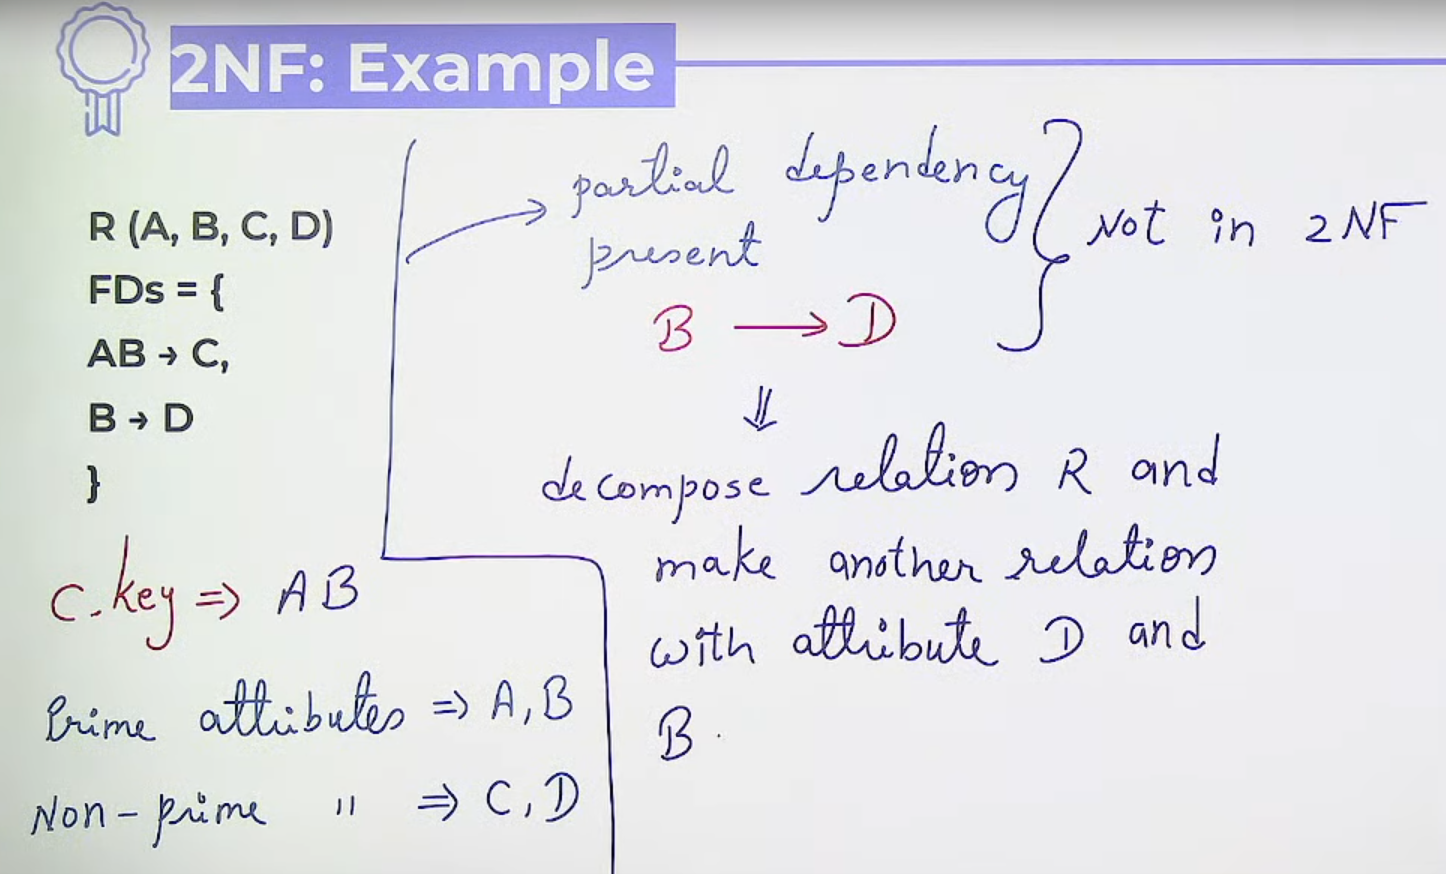 2NF: Example
R (A, B, C, D)
FDs = {
AB → C,
B → D
}
C. key => AB
Prime attributes => A, B
Non-prime " => C, D
partial dependency
present
B → D
} Not in 2NF
⇓
decompose relation R and
make another relation
with attribute D and
B.